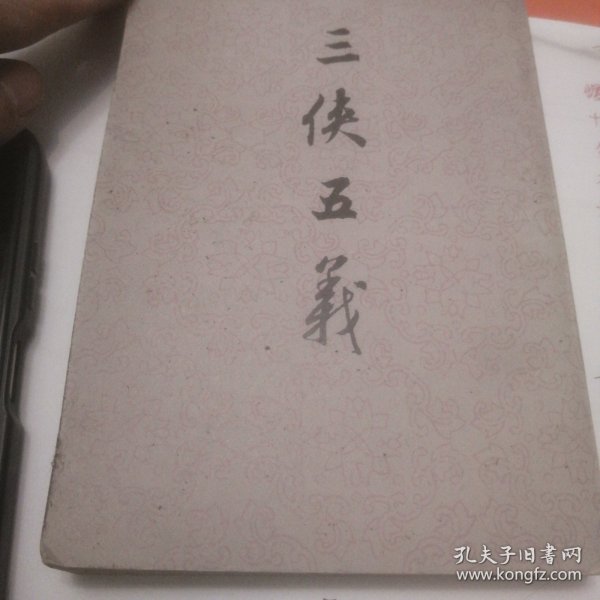 三俠五義
孔夫子旧書网
www.kongfz.com